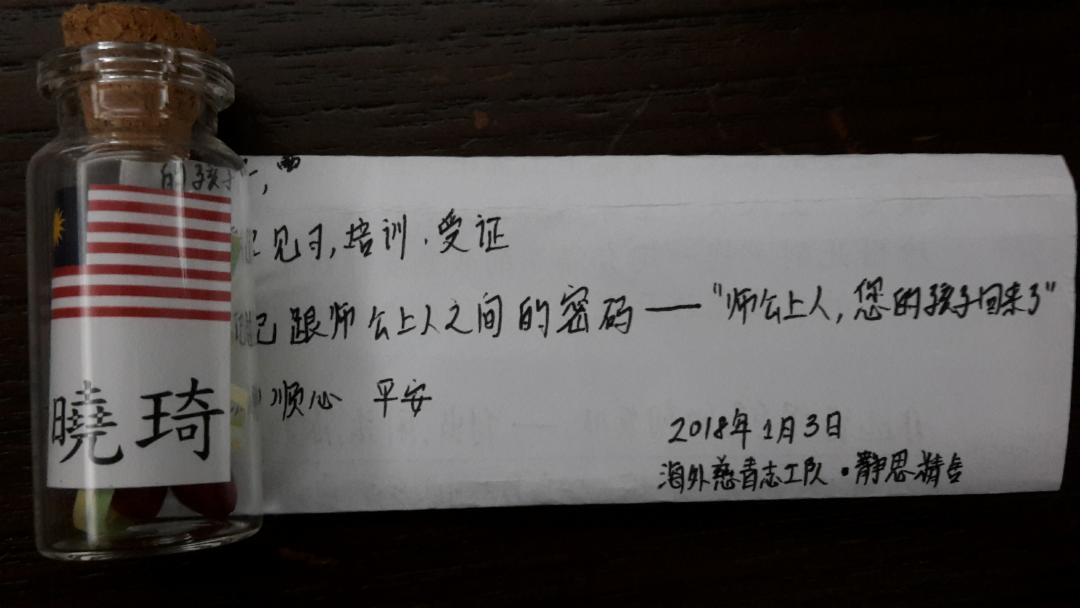 的孩子
见习,培训,受证
己跟师公上人之间的密码——"师公上人,您的孩子回来了"
顺心 平安
2018年1月3日
海外慈青志工队·静思精舍
曉琦